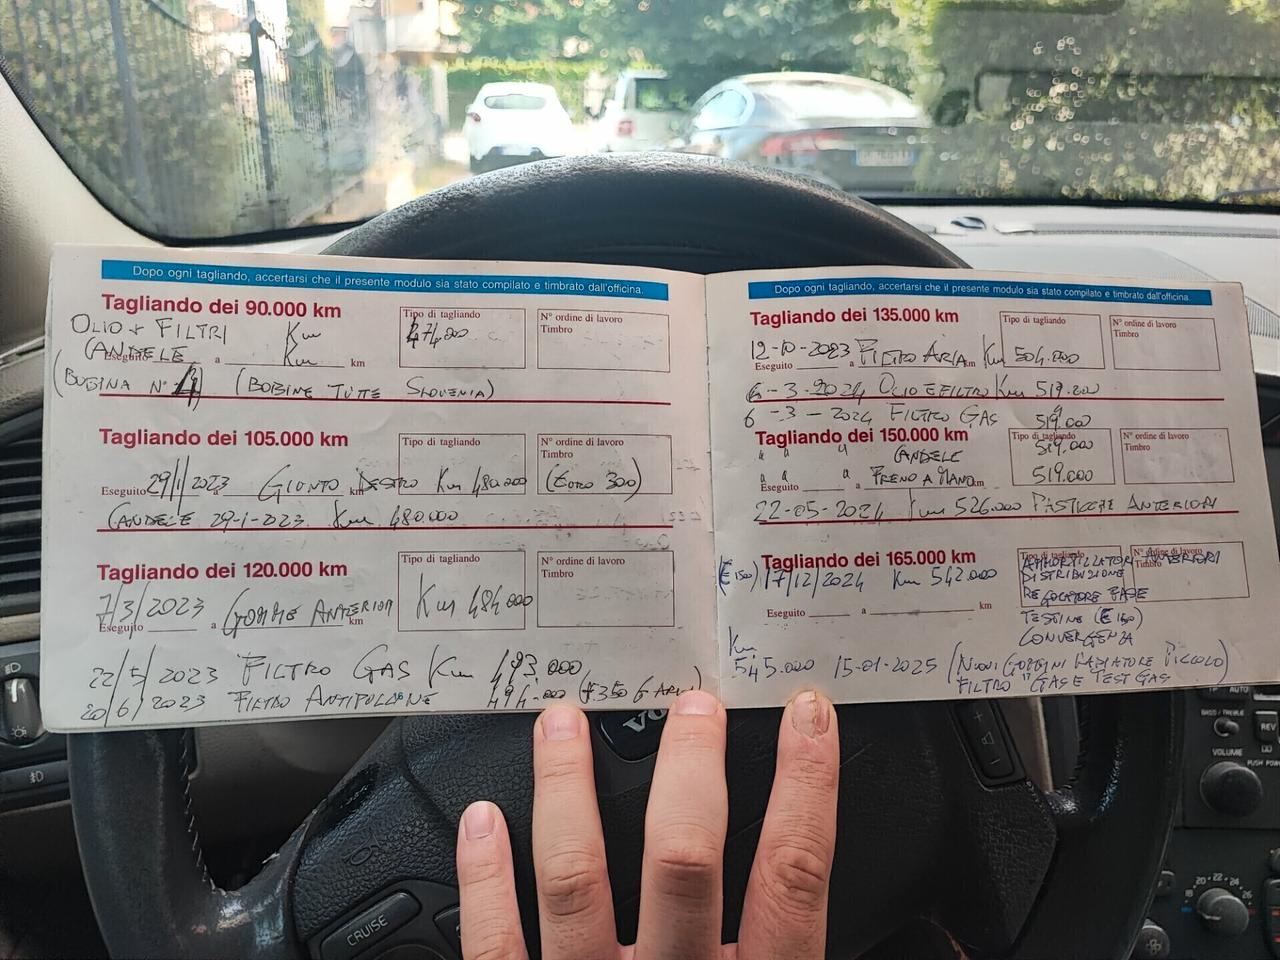 Dopo ogni tagliando, accertarsi che il presente modulo sia stato compilato e timbrato dall'officina.
Tagliando dei 90.000 km
OLIO + FILTRI Km
CANDELE Km
Eseguito a km
Tipo di tagliando
474.000
N° ordine di lavoro
Timbro
(BOBINA N° 4) (BOBINE TUTTE SLOVENIA)
Tagliando dei 105.000 km
Tipo di tagliando
N° ordine di lavoro
Timbro
Eseguito 29/1/2023 a GIUNTO DESTRO km Km 480.000 (EURO 300)
CANDELE 29-1-2023 Km 480.000
Tagliando dei 120.000 km
Tipo di tagliando
N° ordine di lavoro
Timbro
7/3/2023 GOMME ANTERIORI Km 484.000
Eseguito a km
22/5/2023 FILTRO GAS Km 493.000
20/6/2023 FILTRO ANTIPOLLINE 494.000
Dopo ogni tagliando, accertarsi che il presente modulo sia stato compilato e timbrato dall'officina.
Tagliando dei 135.000 km
Tipo di tagliando
N° ordine di lavoro
Timbro
12-10-2023 FILTRO ARIA Km 504.000
Eseguito a km
6-3-2024 OLIO E FILTRO Km 519.200
6-3-2024 FILTRO GAS 519.00
Tagliando dei 150.000 km
Tipo di tagliando
N° ordine di lavoro
Timbro
" " " CANDELE 519.000
" " " FRENO A MANO 519.000
Eseguito a km
22-05-2024 Km 526.000 PASTICCHE ANTERIORI
Tagliando dei 165.000 km
Tipo di tagliando
N° ordine di lavoro
Timbro
(€ 1500) 17/12/2024 Km 542.000
AMMORTIZZATORI ANTERIORI
DISTRIBUZIONE
REGOLATORE FASE
TESTINE (€ 150)
CONVERGENZA
Eseguito a km
Km
545.000 15-01-2025 (NUOVI RADIATORE PICCOLO)
FILTRO GAS E TEST GAS
CRUISE
AUTO
BASS/TREBLE
REV
VOLUME
PUSH
20 22 24
18 26